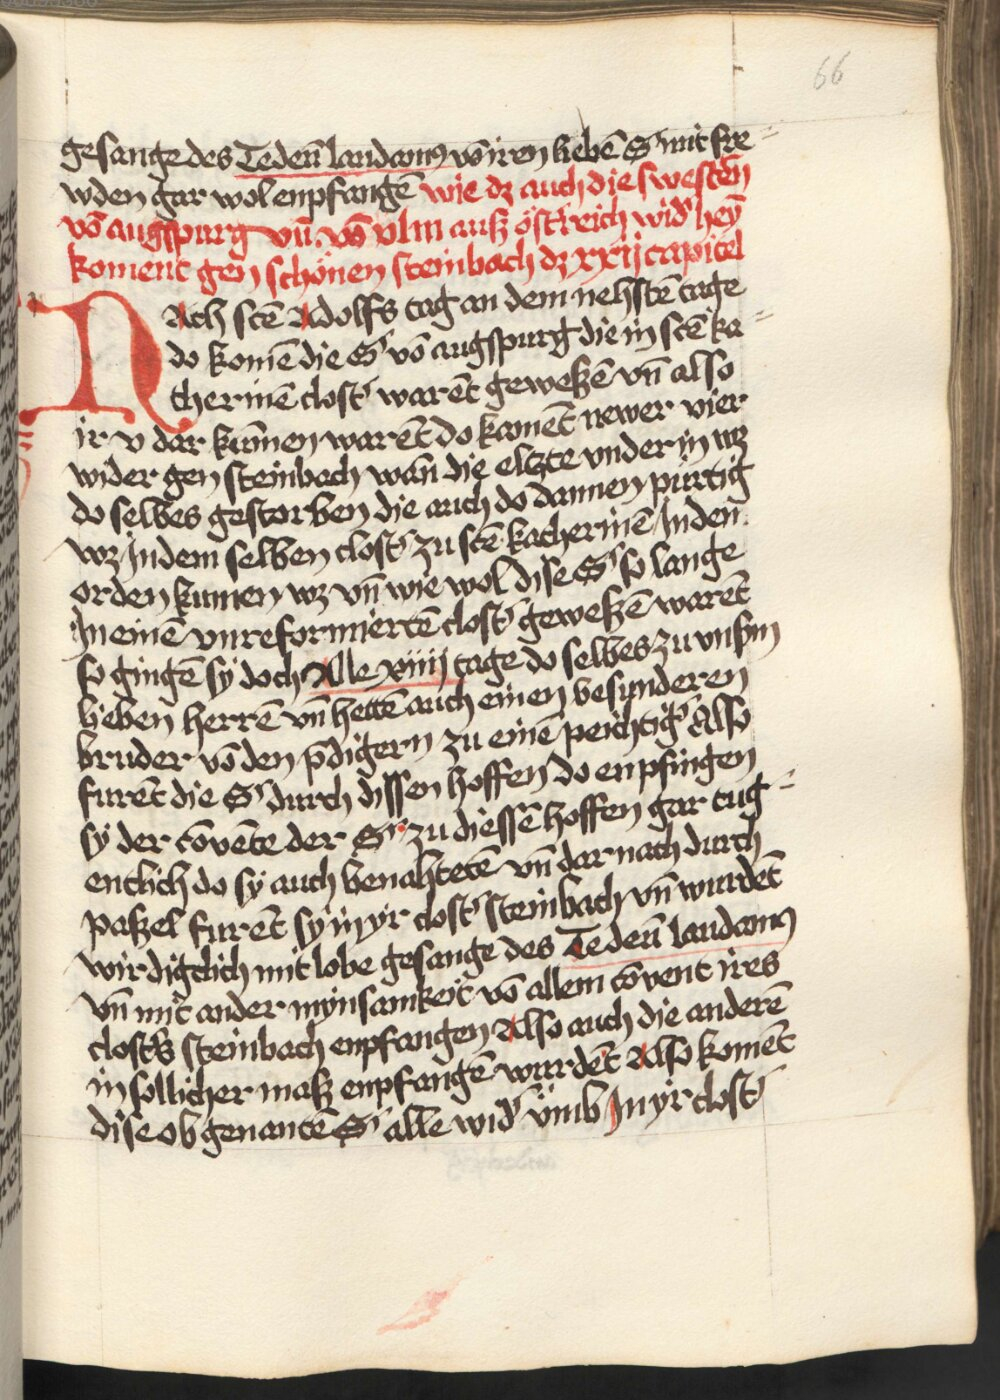 66
gesange des Te deū laudamꝰ vō iren liebē S' mit fre=
wden gar wol enpfangē wie dz auch die swestērn
vō augspurg vn̄ vō vlm auß östreich wid' heÿ
koment gen schönen steinbach dz xxij capitel
Nach scē Adolfs tag an dem nehstē tage
do komē die S' vō augspurg die in scē ka=
therinē clost' warēt geweßē vn̄ also
ir v dar kumen warēt do kamēt newer vier
wider gen steinbach wān die eltzte vnder in wz
do selbes gestorben die auch do dannen pürtig
wz Jn dem selben clost' zu scē katherinē Jn den
orden kumen wz vn̄ wie wol dise S' so lange
Jn einē vnreformiertē clost' geweßē warēt
so gingē sy doch Alle xiiij tage do selbes zu vnsm
lieben herrē vn̄ hettē auch einen besunderen
bruder vō den p̄digern zu einē peichtig' Also
furēt die S' durch dissen hoffen do enpfingen
sy der cōvēte der S' zu diessē hoffen gar tug=
entlich do sy auch benahtetē vn̄ dar nach durch
paßel furēt sy in yr clost' steinbach vn̄ wurdēt
wirdigclich mit lobe gesange des Te deū laudamꝰ
vn̄ mit ander mynsamkeit vō allem cōvent ires
clost's steinbach enpfangen Also auch die anderē
in sollicher maß enpfangē wurdēt Also komēt
dise ob genantē S' alle wid' vmb Jn yr clost'